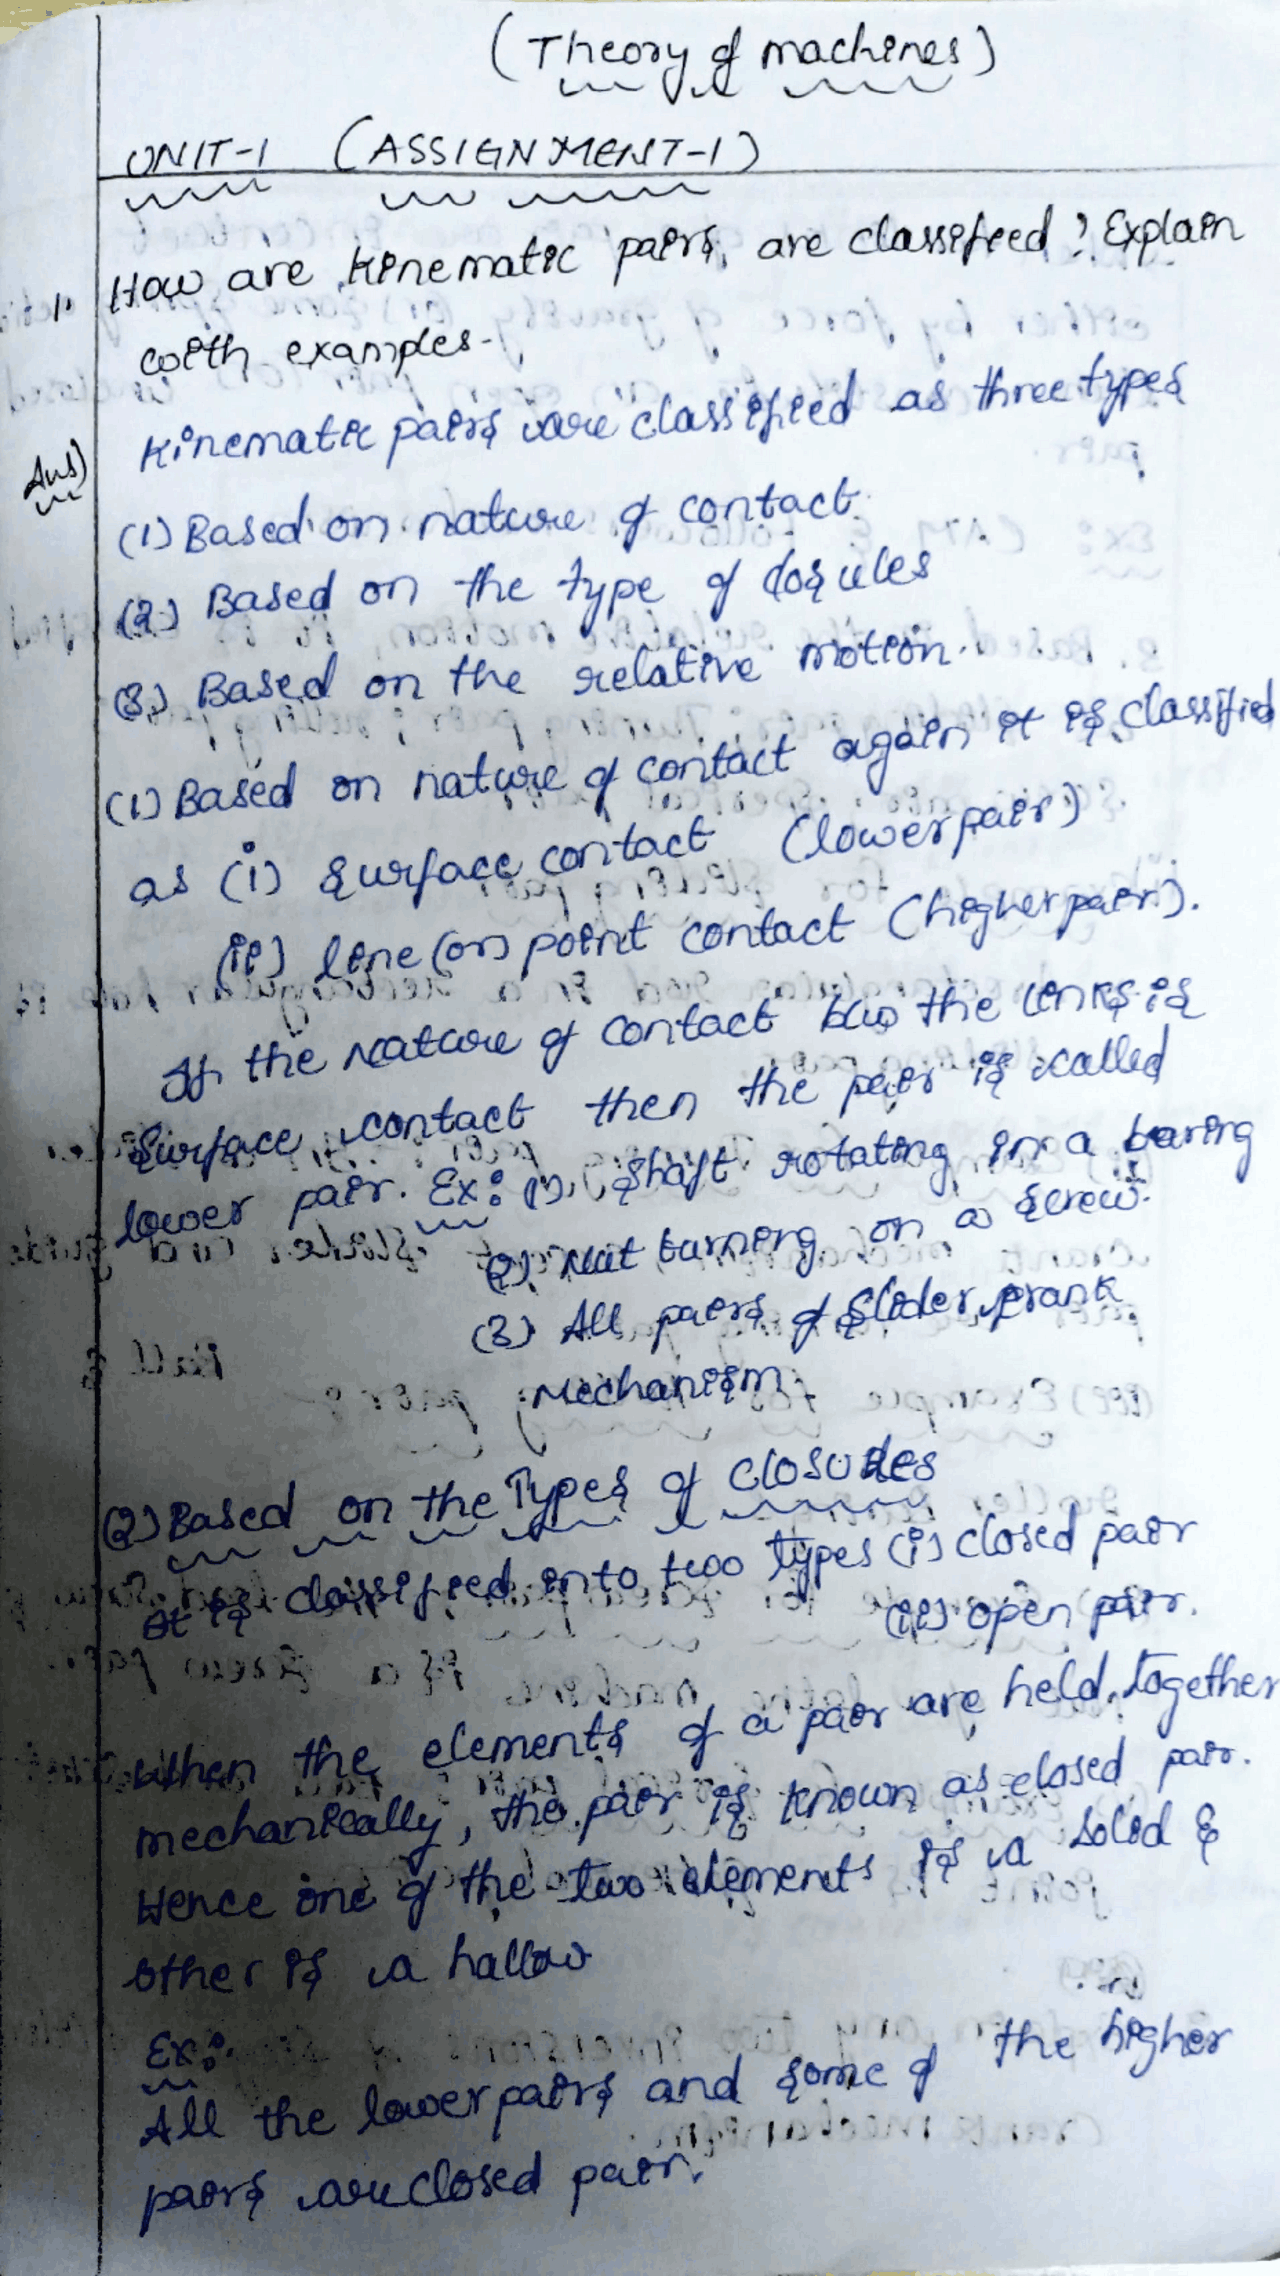 (Theory of machines)
UNIT-1 (ASSIGNMENT-1)
1. How are kinematic pairs are classified? Explain
with examples.
Ans) Kinematic pairs are classified as three types
(1) Based on nature of contact.
(2) Based on the type of
(3) Based on the relative motion.
(1) Based on nature of contact again it is classified
as (i) surface contact (lower pair)
(ii) line (or) point contact (higher pair).
If the nature of contact b/w the links is
surface contact then the pair is called
lower pair. Ex: (1) shaft rotating in a baring
(2) Nut turning on a screw.
(3) All pairs of slider, crank
Mechanism
(2) Based on the Types of closures
It is classified into two types (i) closed pair
(ii) open pair.
When the elements of a pair are held together
mechanically, the pair is known as closed pair.
Hence one of the two elements is a solid &
other is a hallow
Ex:
All the lower pairs and some of the higher
pairs are closed pair.